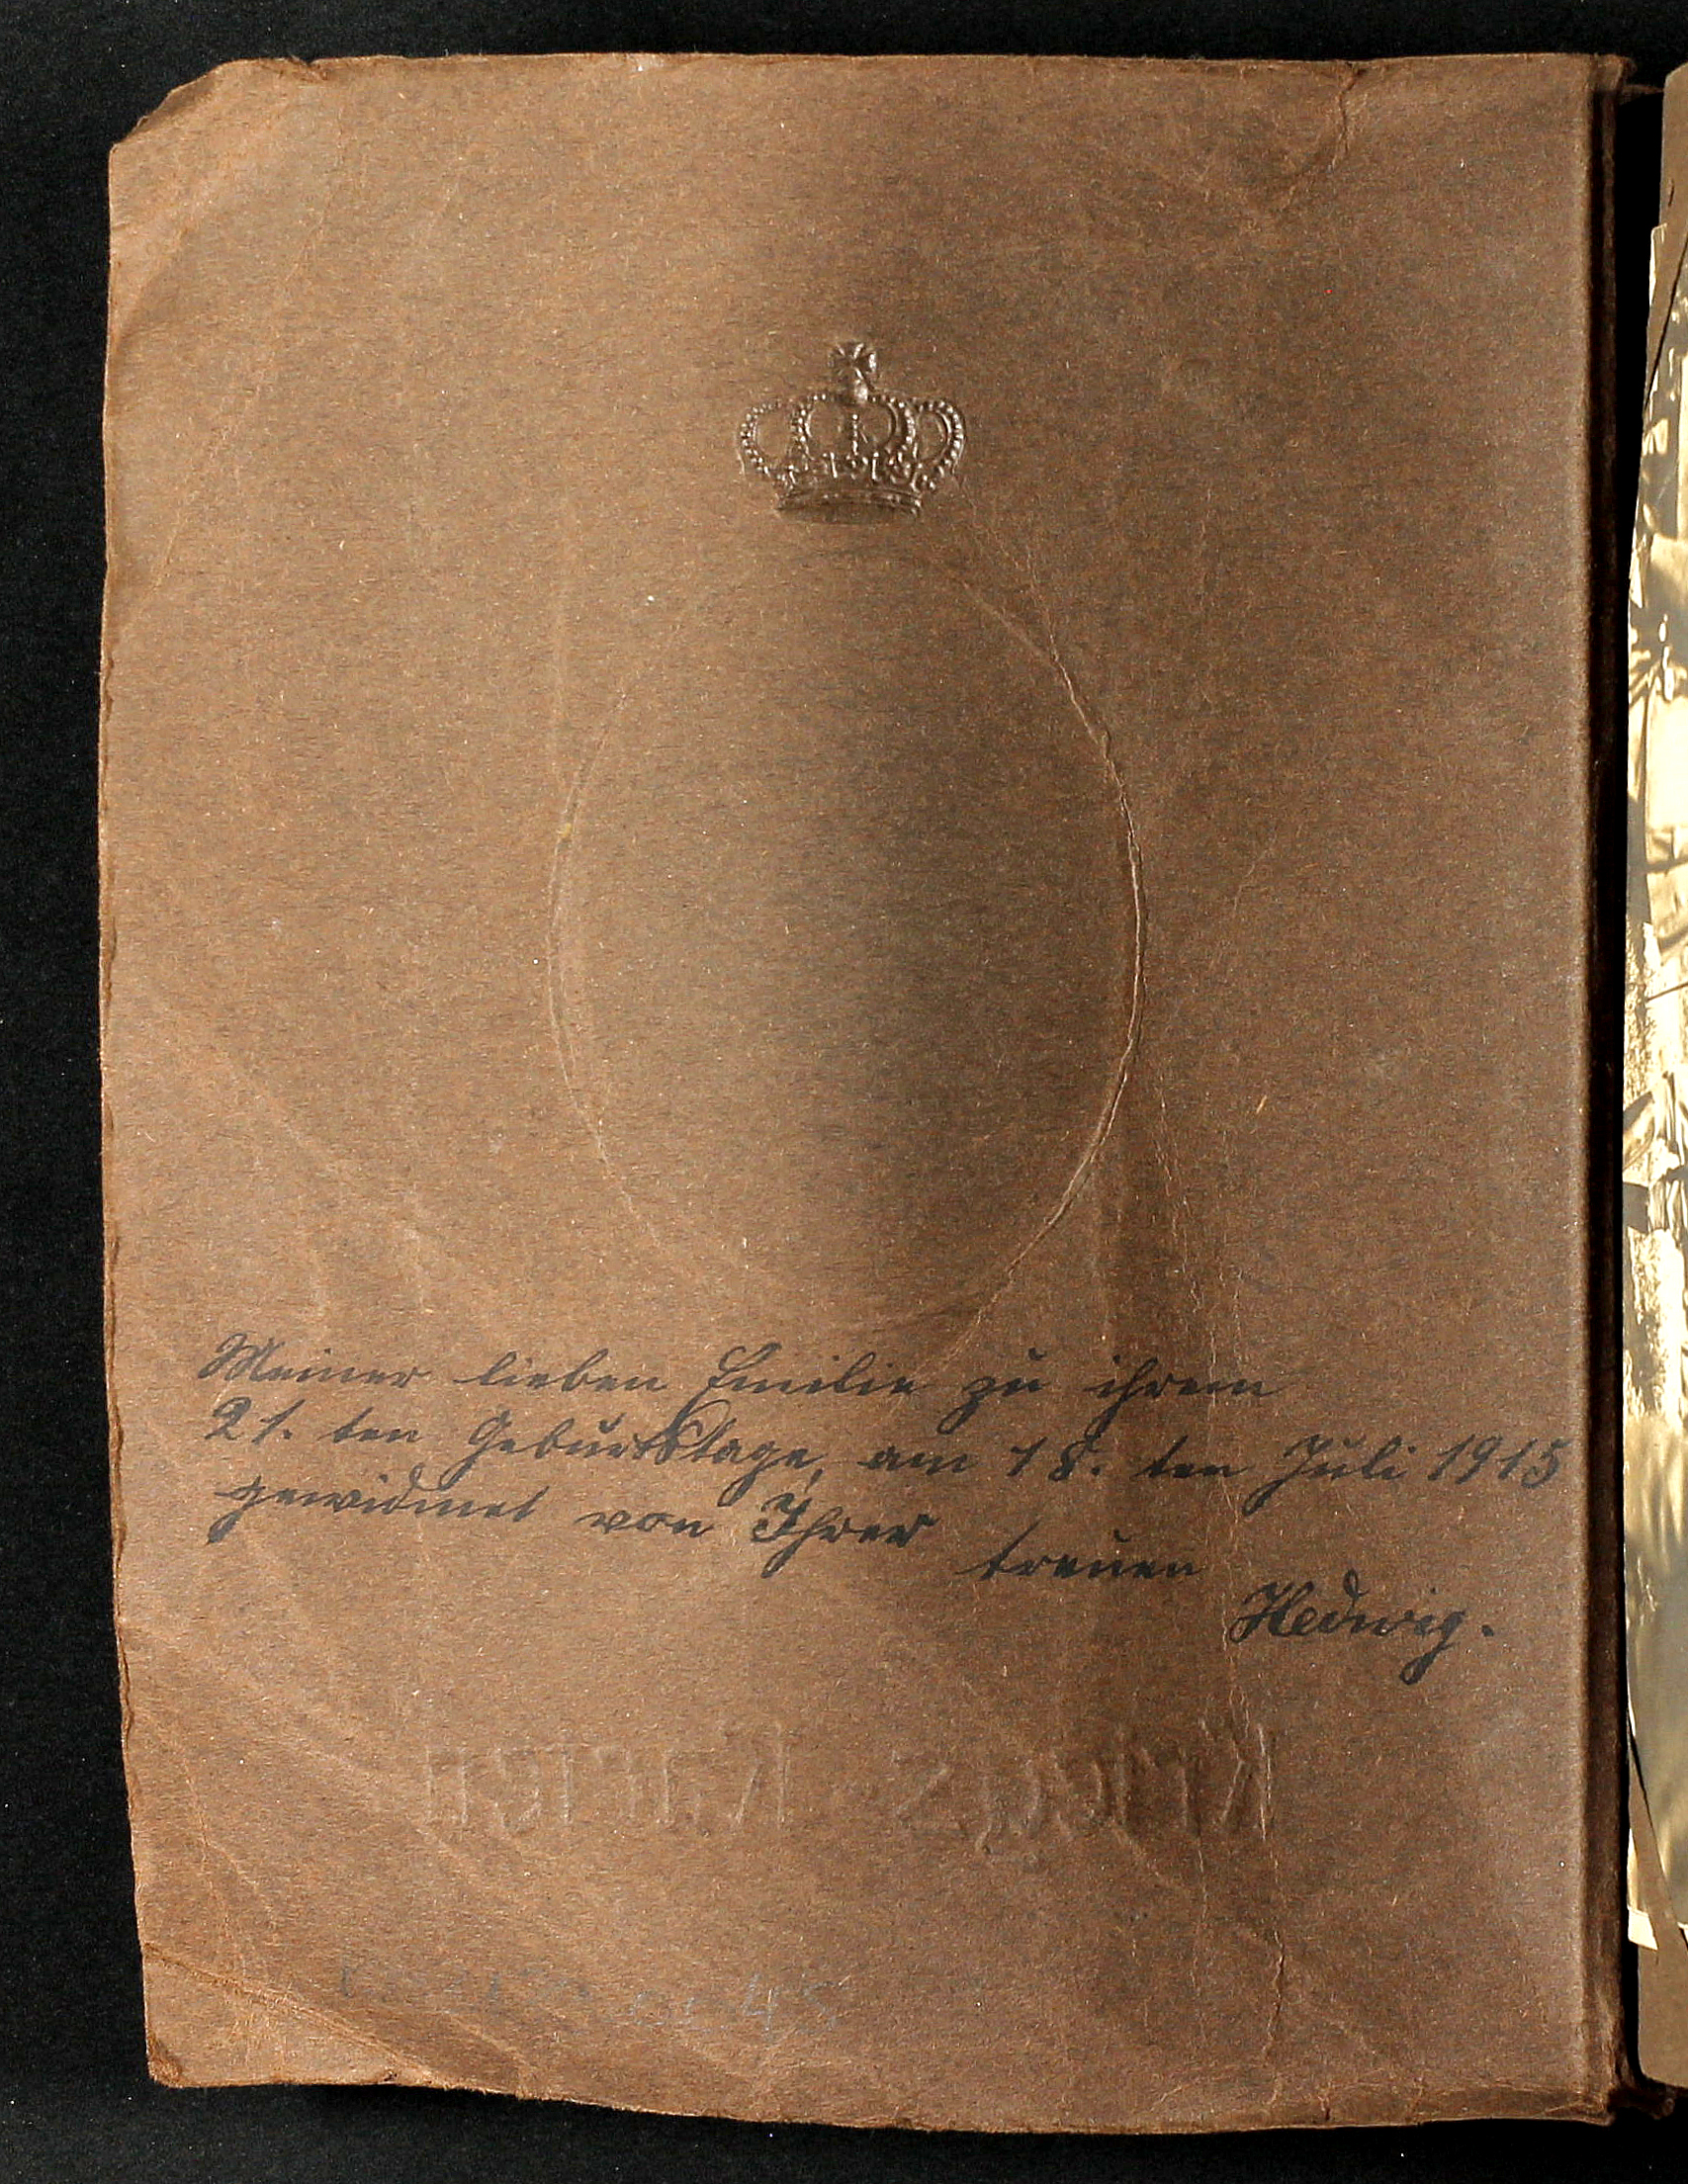 Meiner lieben Emilie zu ihrem
21. ten Geburtstage, am 18. ten Juli 1915
gewidmet von Ihrer
treuen
Hedwig.